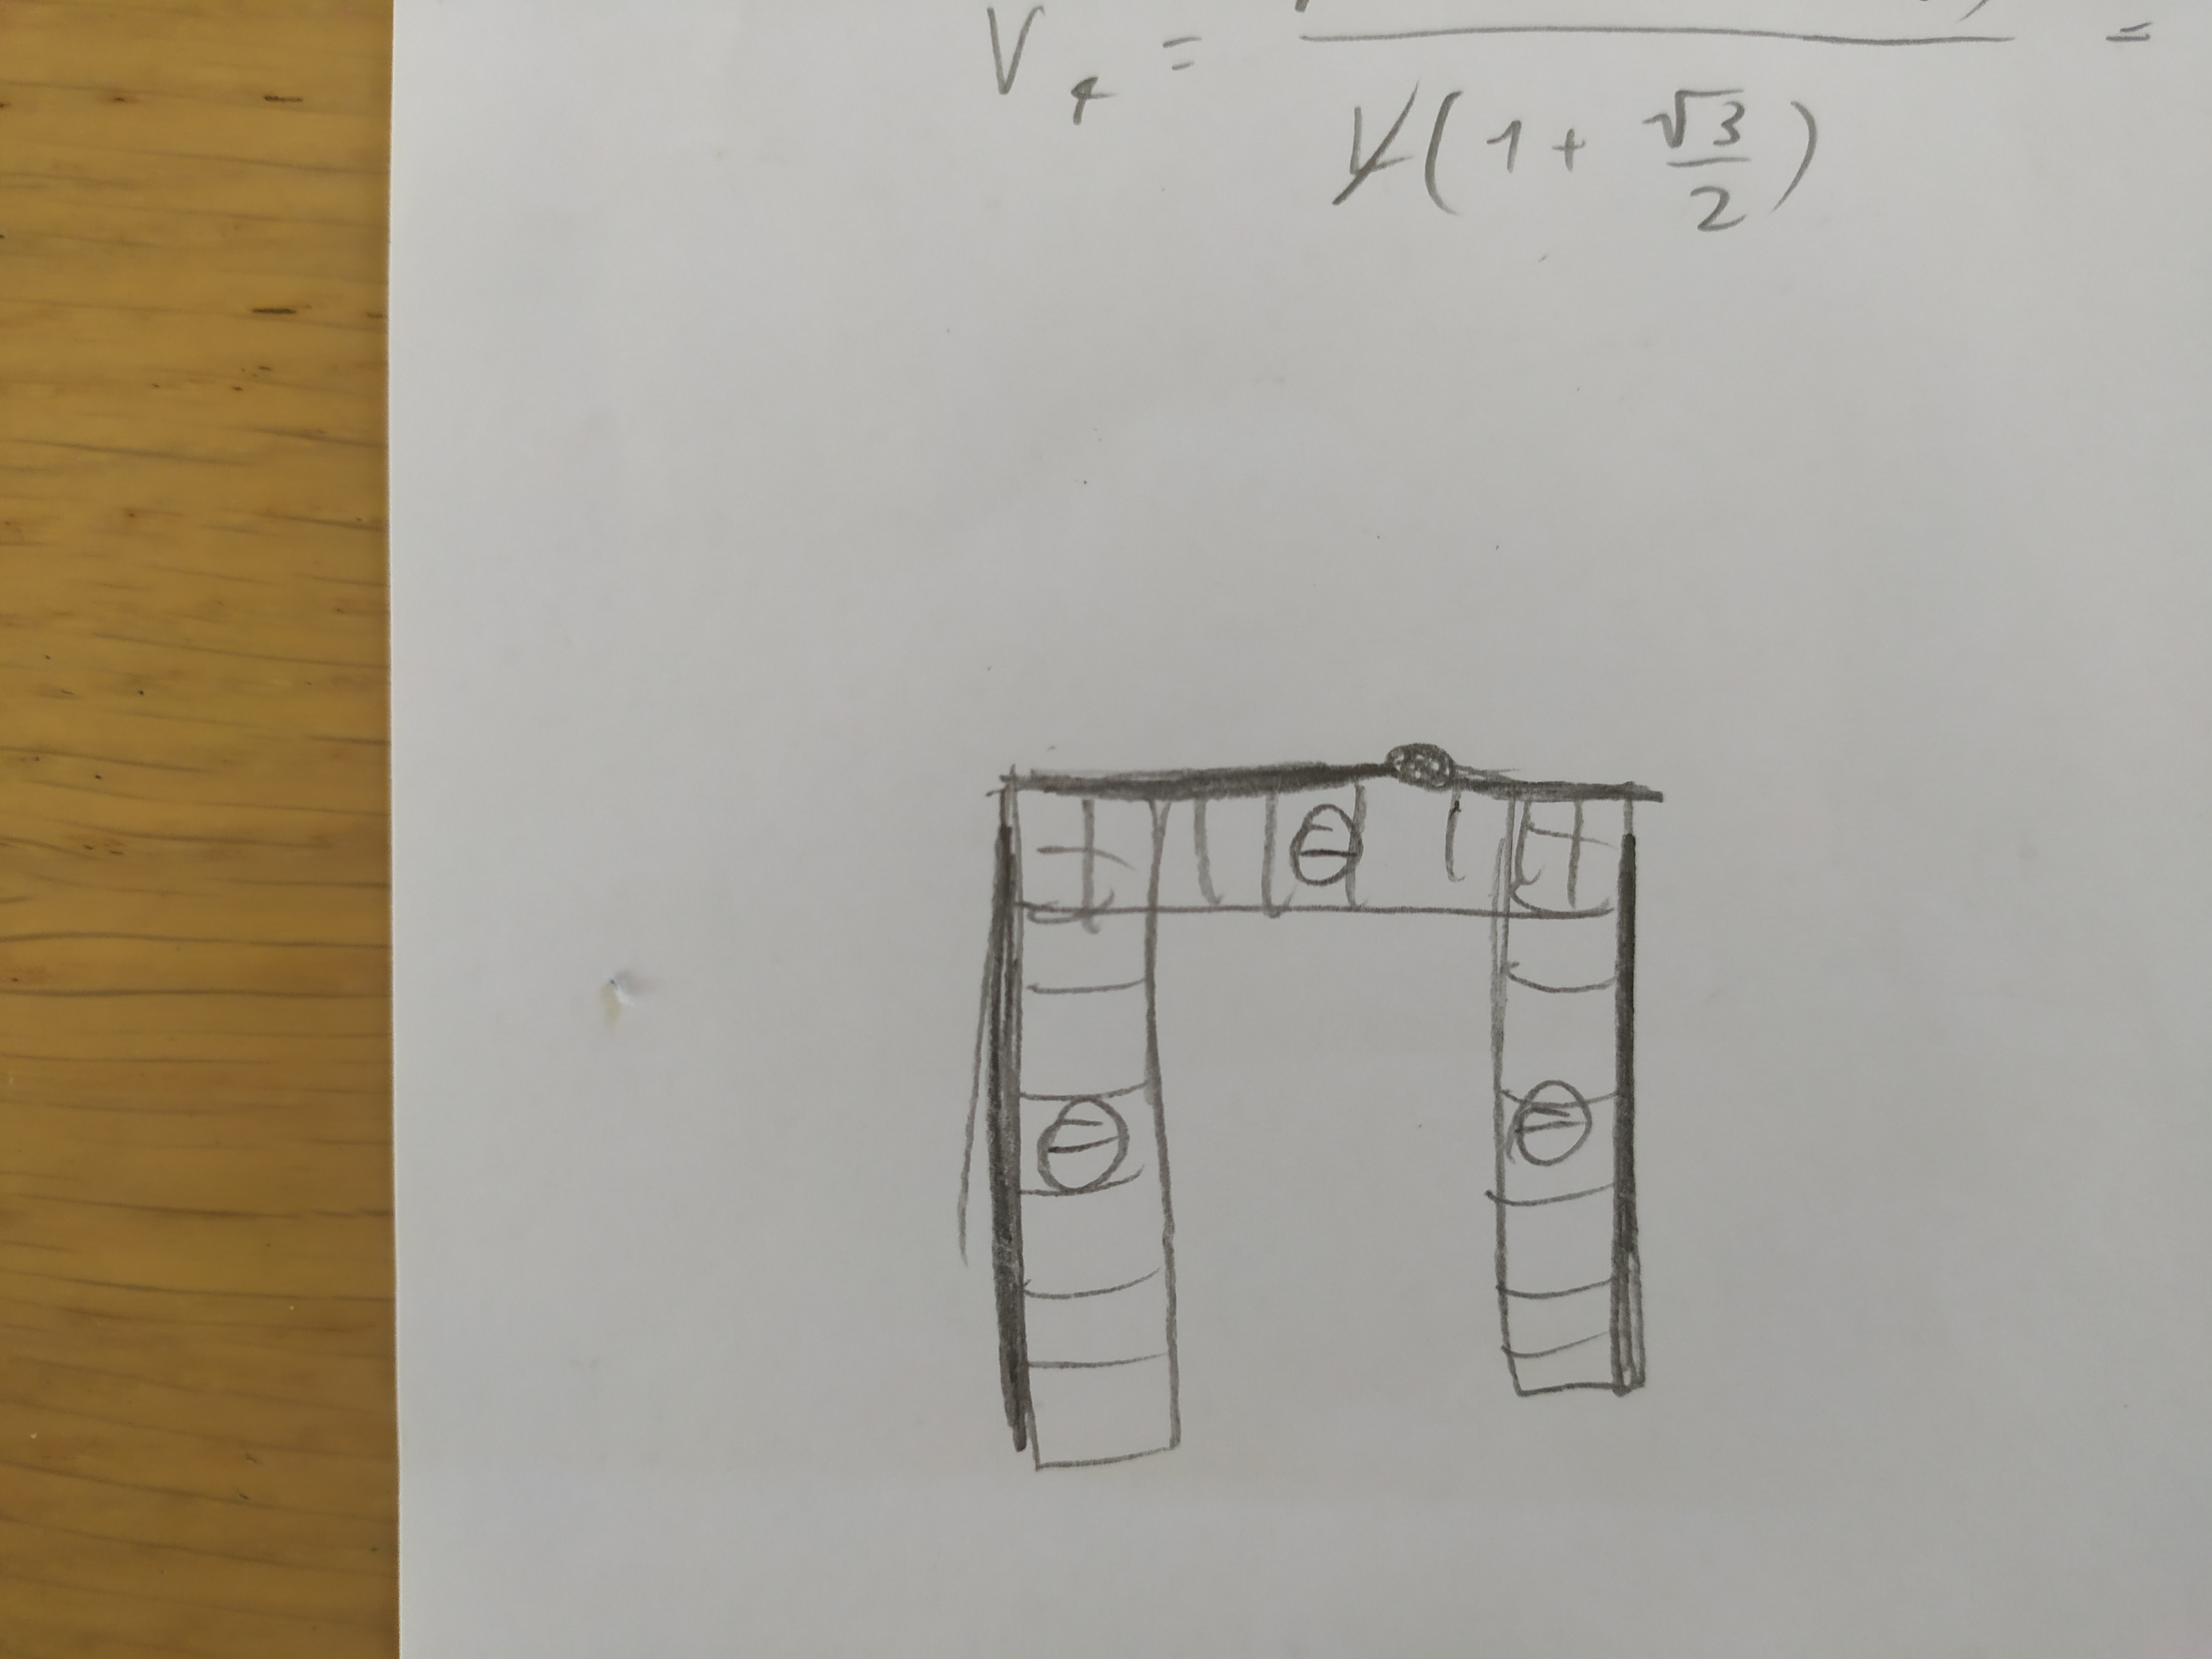 V₄ = =
V(1 + √3/2)
⊖
⊖ ⊖